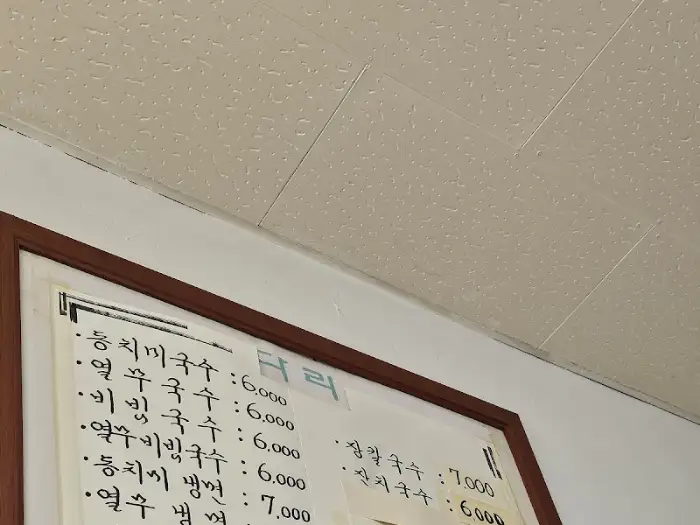 다리
· 동치미국수 : 6,000
· 열무국수 : 6,000
· 비빔국수 : 6,000
· 열무비빔국수 : 6,000
· 동치미 냉면 : 7,000
· 열무 냉면
· 장칼국수 : 7,000
· 잔치국수 : 6,000